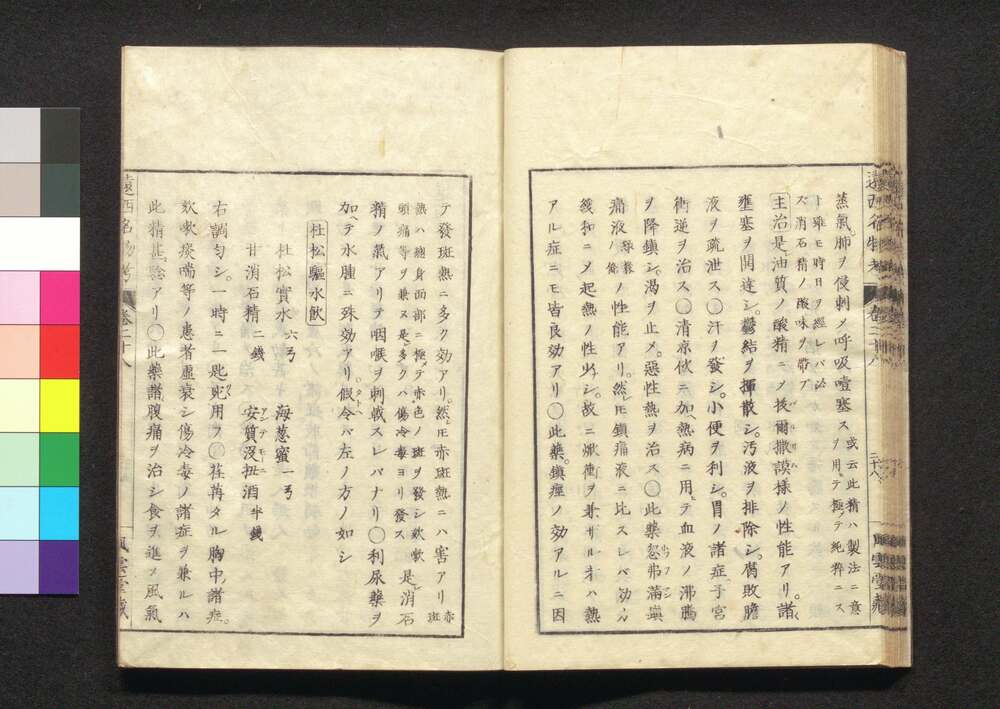 蒸氣肺ヲ侵刺メ呼吸噎塞ス 或云此精ハ製法ニ意ヲ用テ極テ純粹ニス
ト雖モ時日ヲ經レバ必ズ消石精ノ酸味ヲ帶ブ
主治 是油質ノ酸精ニメ拔爾撒謨樣ノ性能アリ。諸
壅塞ヲ開達シ。鬱結ヲ揮散シ。汚液ヲ排除シ。腐敗膽
液ヲ疏泄ス〇汗ヲ發シ。小便ヲ利シ。胃ノ諸症子宮
衝逆ヲ治ス〇清凉飮ニ加ヘ熱病ニ用テ血液ノ沸騰
ヲ降鎮シ。渇ヲ止メ。惡性熱ヲ治ス〇此藥忽弗滿鎮
痛液ノ性能アリ。然ﾓ鎮痛液ニ比スレバ効力
緩和ニメ起熱ノ性少シ。故ニ焮衝ヲ兼ザルオハ熱
アル症ニモ皆良効アリ〇此藥。鎮痙ノ効アルニ因
テ發斑熱ニ多ク効アリ。然ﾓ赤斑熱ニハ害アリ 赤斑
熱ハ總身面部ニ極メテ赤色ノ斑ヲ發シ欬嗽
頭痛等ヲ兼ヌ是多クハ傷冷毒ヨリ發ス 是消石
精ノ氣アリテ咽喉ヲ刺戟スレバナリ〇利尿藥ヲ
加ヘテ水腫ニ殊効アリ假令バ左ノ方ノ如シ
杜松驅水飮
杜松實水 六弓 海葱蜜 一弓
甘消石精 二錢 安質沒扭酒 半錢
右調匀シ。一時ニ一匙宛用フ〇荏苒タル胸中ノ諸症。
欬嗽痰喘等ノ患者虚衰シ傷冷毒ノ諸症ヲ兼ルハ
此精甚驗アリ〇此藥諸腹痛ヲ治シ食ヲ進メ風氣
遠西名物考 卷二十八
風雲堂藏
二十八